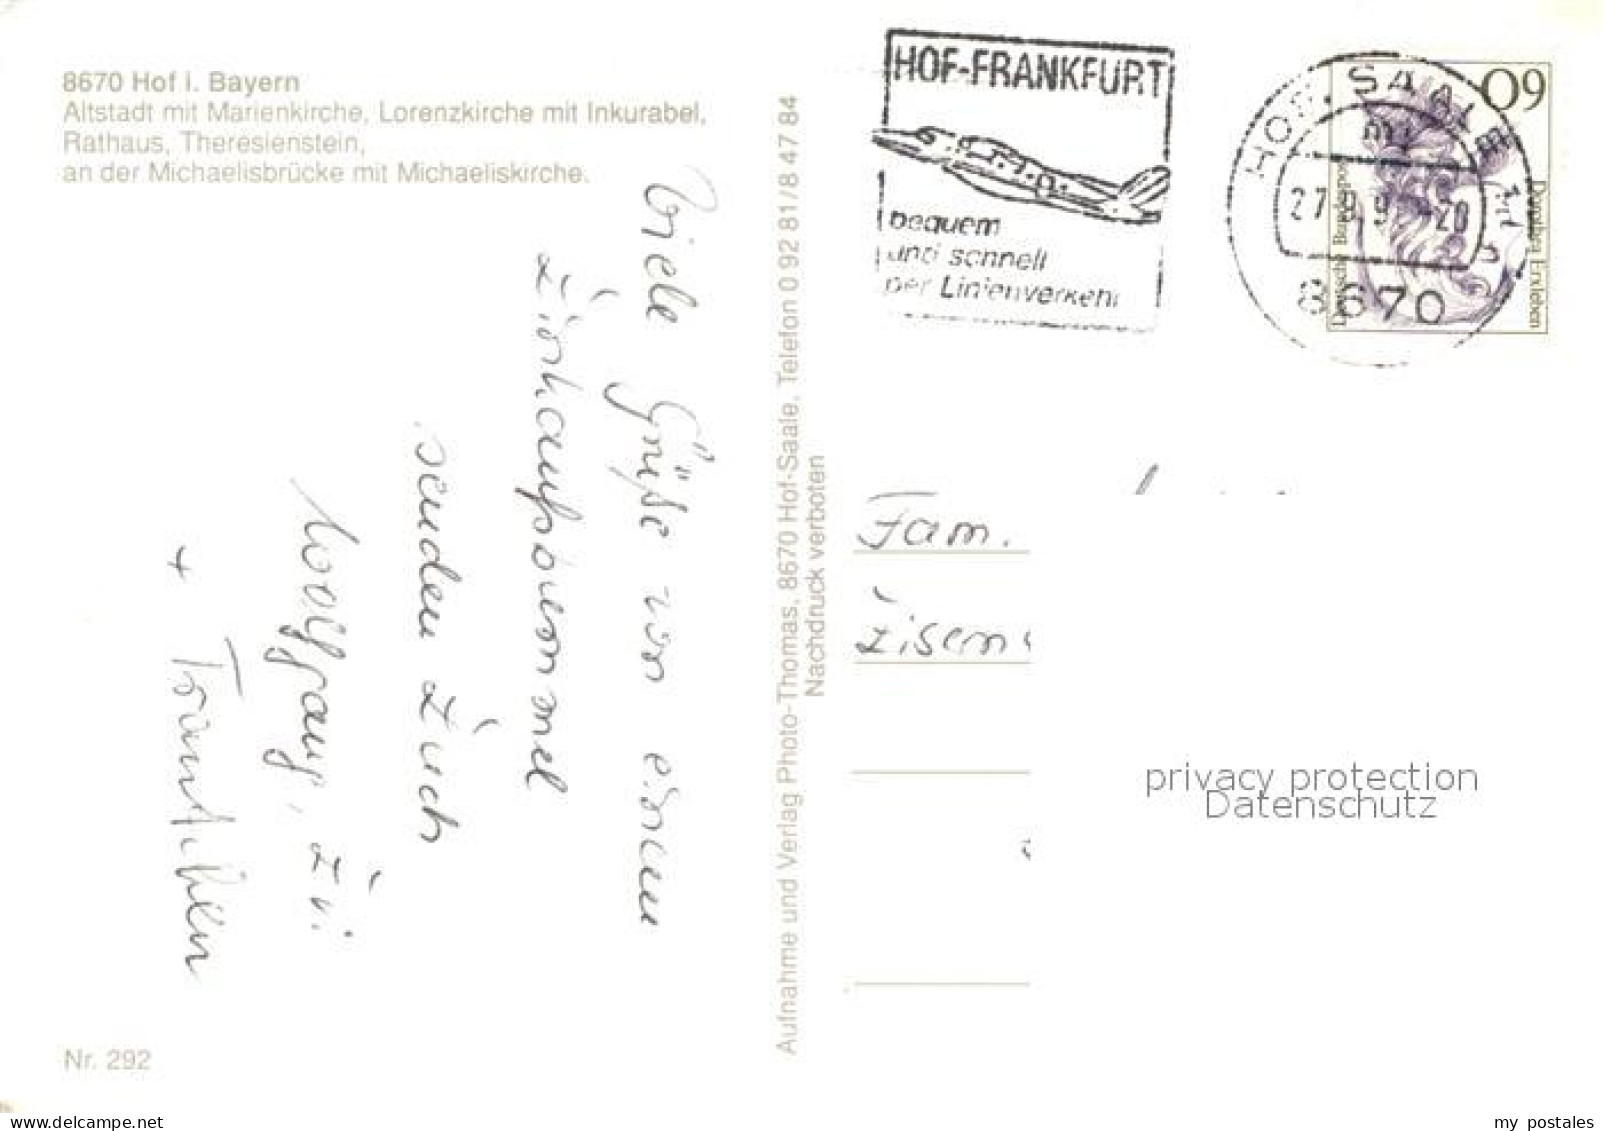 8670 Hof i. Bayern
Altstadt mit Marienkirche, Lorenzkirche mit Inkurabel,
Rathaus, Theresienstein,
an der Michaelisbrücke mit Michaeliskirche.
Viele Grüße von einem
Einkaufsbummel
senden Euch
Wolfgang, Evi
+
Nr. 292
Aufnahme und Verlag Photo-Thomas, 8670 Hof-Saale, Telefon 0 92 81/8 47 84
Nachdruck verboten
HOF-FRANKFURT
bequem
und schnell
per Linienverkehr
HOF, SAALE
27.
8670
60
Deutsche Bundespost
Dorothea Erxleben
Fam.
privacy protection
Datenschutz
www.delcampe.net
my postales